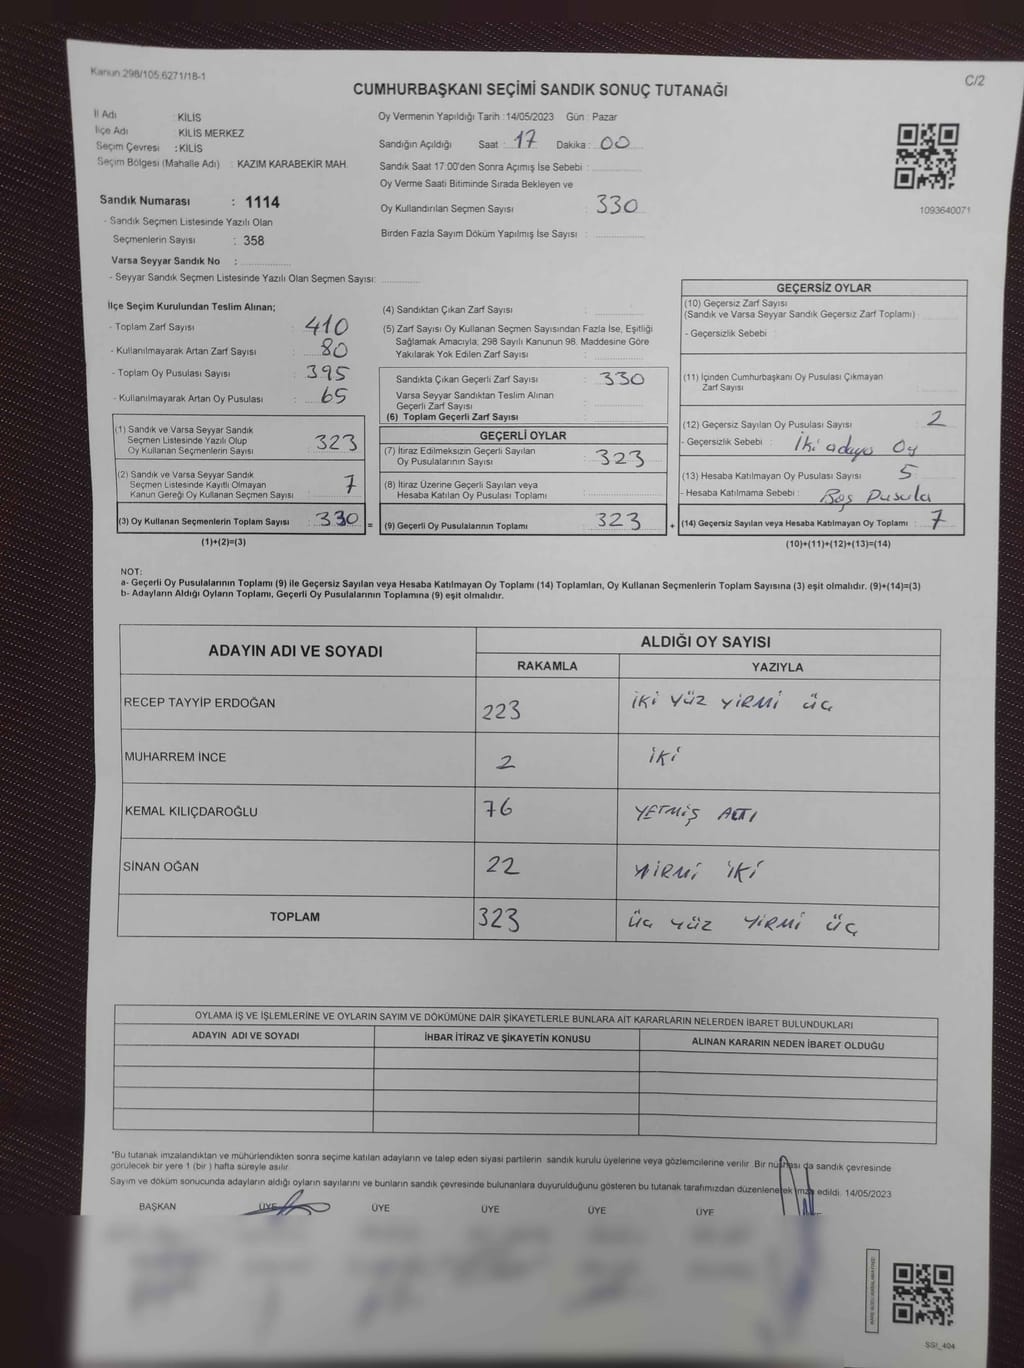 Kanun 298/105.6271/18-1
C/2
CUMHURBAŞKANI SEÇİMİ SANDIK SONUÇ TUTANAĞI
İl Adı : KİLİS
İlçe Adı : KİLİS MERKEZ
Seçim Çevresi : KİLİS
Seçim Bölgesi (Mahalle Adı) : KAZIM KARABEKİR MAH.
Sandık Numarası : 1114
- Sandık Seçmen Listesinde Yazılı Olan
Seçmenlerin Sayısı : 358
Varsa Seyyar Sandık No :
- Seyyar Sandık Seçmen Listesinde Yazılı Olan Seçmen Sayısı:
Oy Vermenin Yapıldığı Tarih : 14/05/2023 Gün : Pazar
Sandığın Açıldığı Saat : 17 Dakika : 00
Sandık Saat 17:00'den Sonra Açımış İse Sebebi :
Oy Verme Saati Bitiminde Sırada Bekleyen ve
Oy Kullandırılan Seçmen Sayısı : 330
Birden Fazla Sayım Döküm Yapılmış İse Sayısı :
1093640071
İlçe Seçim Kurulundan Teslim Alınan;
- Toplam Zarf Sayısı : 410
- Kullanılmayarak Artan Zarf Sayısı : 80
- Toplam Oy Pusulası Sayısı : 395
- Kullanılmayarak Artan Oy Pusulası : 65
(1) Sandık ve Varsa Seyyar Sandık
Seçmen Listesinde Yazılı Olup
Oy Kullanan Seçmenlerin Sayısı : 323
(2) Sandık ve Varsa Seyyar Sandık
Seçmen Listesinde Kayıtlı Olmayan
Kanun Gereği Oy Kullanan Seçmen Sayısı : 7
(3) Oy Kullanan Seçmenlerin Toplam Sayısı : 330 =
(1)+(2)=(3)
(4) Sandıktan Çıkan Zarf Sayısı :
(5) Zarf Sayısı Oy Kullanan Seçmen Sayısından Fazla İse, Eşitliği
Sağlamak Amacıyla; 298 Sayılı Kanunun 98. Maddesine Göre
Yakılarak Yok Edilen Zarf Sayısı :
Sandıkta Çıkan Geçerli Zarf Sayısı : 330
Varsa Seyyar Sandıktan Teslim Alınan
Geçerli Zarf Sayısı :
(6) Toplam Geçerli Zarf Sayısı :
GEÇERLİ OYLAR
(7) İtiraz Edilmeksizin Geçerli Sayılan
Oy Pusulalarının Sayısı : 323
(8) İtiraz Üzerine Geçerli Sayılan veya
Hesaba Katılan Oy Pusulası Toplamı :
(9) Geçerli Oy Pusulalarının Toplamı : 323 +
GEÇERSİZ OYLAR
(10) Geçersiz Zarf Sayısı
(Sandık ve Varsa Seyyar Sandık Geçersiz Zarf Toplamı) :
- Geçersizlik Sebebi :
(11) İçinden Cumhurbaşkanı Oy Pusulası Çıkmayan
Zarf Sayısı :
(12) Geçersiz Sayılan Oy Pusulası Sayısı : 2
- Geçersizlik Sebebi : İki adaya Oy
(13) Hesaba Katılmayan Oy Pusulası Sayısı : 5
- Hesaba Katılmama Sebebi : Boş Pusula
(14) Geçersiz Sayılan veya Hesaba Katılmayan Oy Toplamı : 7
(10)+(11)+(12)+(13)=(14)
NOT:
a- Geçerli Oy Pusulalarının Toplamı (9) ile Geçersiz Sayılan veya Hesaba Katılmayan Oy Toplamı (14) Toplamları, Oy Kullanan Seçmenlerin Toplam Sayısına (3) eşit olmalıdır. (9)+(14)=(3)
b- Adayların Aldığı Oyların Toplamı, Geçerli Oy Pusulalarının Toplamına (9) eşit olmalıdır.
ADAYIN ADI VE SOYADI
ALDIĞI OY SAYISI
RAKAMLA YAZIYLA
RECEP TAYYİP ERDOĞAN 223 İKİ YÜZ YİRMİ ÜÇ
MUHARREM İNCE 2 İKİ
KEMAL KILIÇDAROĞLU 76 YETMİŞ ALTI
SİNAN OĞAN 22 YİRMİ İKİ
TOPLAM 323 ÜÇ YÜZ YİRMİ ÜÇ
OYLAMA İŞ VE İŞLEMLERİNE VE OYLARIN SAYIM VE DÖKÜMÜNE DAİR ŞİKAYETLERLE BUNLARA AİT KARARLARIN NELERDEN İBARET BULUNDUKLARI
ADAYIN ADI VE SOYADI İHBAR İTİRAZ VE ŞİKAYETİN KONUSU ALINAN KARARIN NEDEN İBARET OLDUĞU
"Bu tutanak imzalandıktan ve mühürlendikten sonra seçime katılan adayların ve talep eden siyasi partilerin sandık kurulu üyelerine veya gözlemcilerine verilir. Bir nüshası da sandık çevresinde
görülecek bir yere 1 (bir) hafta süreyle asılır.
Sayım ve döküm sonucunda adayların aldığı oyların sayılarını ve bunların sandık çevresinde bulunanlara duyurulduğunu gösteren bu tutanak tarafımızdan düzenlenerek imza edildi. 14/05/2023
BAŞKAN ÜYE ÜYE ÜYE ÜYE ÜYE
SSI_404